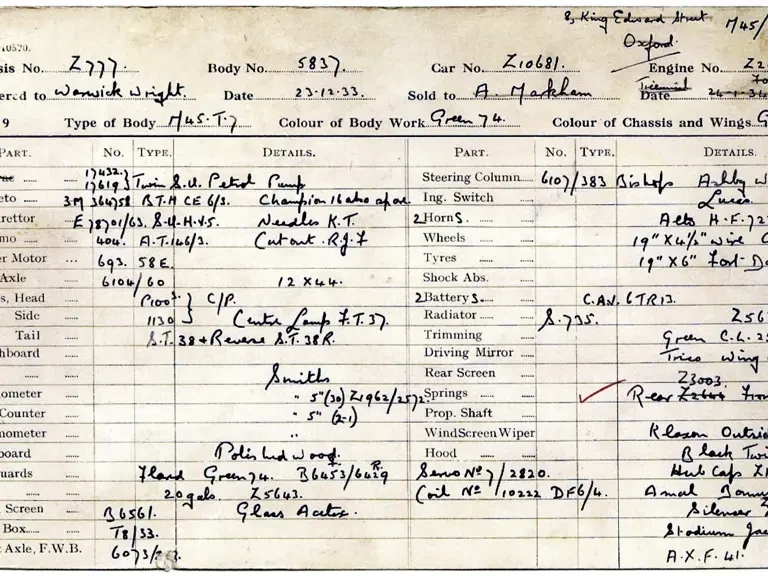 8, King Edward Street M45/
Oxford.
10520.
sis No. Z777. Body No. 5837. Car No. Z10681. Engine No. Z2
ered to Warwick Wright. Date 23-12-33. Sold to A. Markham Date 24-1-34
9 Type of Body M45-T.7 Colour of Body Work Green 74. Colour of Chassis and Wings G
PART. No. TYPE. DETAILS. PART. No. TYPE. DETAILS.
17432. Steering Column 6107/383 Bishops Ashby W
17619 Twin S.U. Petrol Pump Lucas
eto 3M 364758 B.T.H CE 6/3. Champion 16 also spare. Ing. Switch
urettor E78701/63. S.U.H.V.5. Needles K.T. 2 Horns. Alto H.F. 72
mo 404. A.T.146/3. Cut out. R.J.F Wheels 19" X 4½" wire
er Motor 693. 58E. Tyres 19" X 6" Fort D
Axle 6104/60 12 X 44. Shock Abs.
s, Head P100 } C/P. 2 Batterys. C.A.V. 6TR13.
Side 1130 Centre Lamp F.T.37. Radiator S.735. Z56
Tail S.T.38 + Reverse S.T.38R. Trimming Green C.L.
hboard Driving Mirror Trico Wing
Smiths Rear Screen Z3003.
ometer " 5" (30) Z1962/2572. Springs Rear Z2644 Fron
Counter " 5" (2-1) Prop. Shaft
mometer " WindScreen Wiper Klaxon Outsid
board Polished wood. Hood Black Twi
uards Flared Green 74. B6453/6429 R. Servo No 7/2820. Hub Caps Z1
20 gals. Z5643. Coil No 10222 DF6/4. Amal
Screen B6561. Glass Acetex. Silencer
Box T8/33. Stadium Jac
Axle, F.W.B. 6073/ A.X.F. 41.